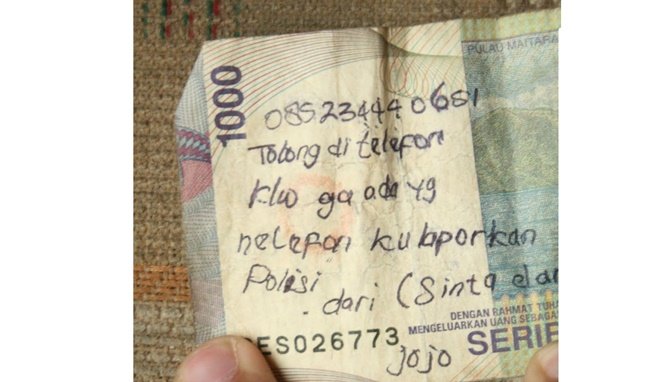 PULAU MAITARA
1000
085234440651
Tolong di telefon
klw ga ada yg
nelefon kulaporkan
Polisi
dari (Sinta dan
jojo
DENGAN RAHMAT TUHA
MENGELUARKAN UANG SEBAGA
ES026773
SERIE